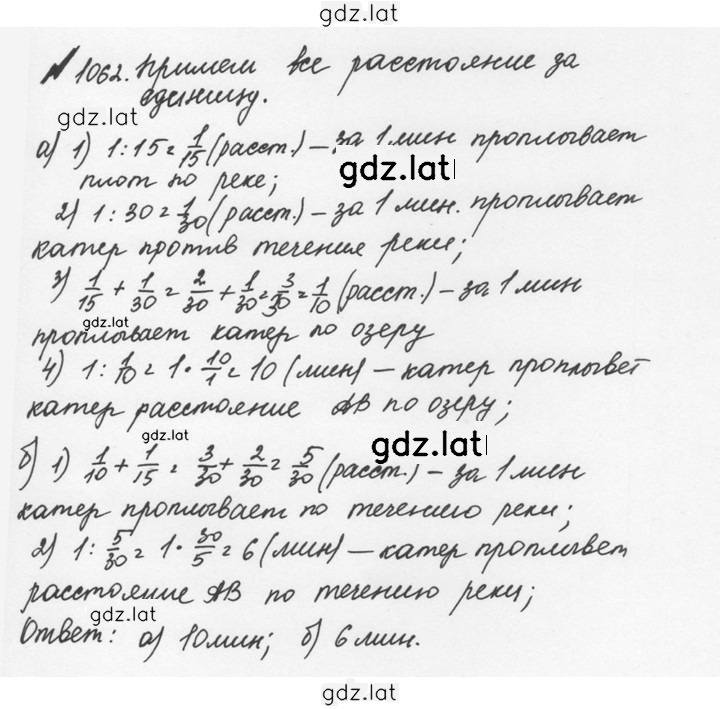 gdz.lat
№ 1062. Примем все расстояние за
единицу.
gdz.lat
а) 1) 1 : 15 = 1/15 (расст.) – за 1 мин проплывает
gdz.lat
плот по реке;
2) 1 : 30 = 1/30 (расст.) – за 1 мин. проплывает
катер против течения реки;
3) 1/15 + 1/30 = 2/30 + 1/30 = 3/30 = 1/10 (расст.) – за 1 мин
gdz.lat
проплывает катер по озеру
4) 1 : 1/10 = 1 · 10/1 = 10 (мин) – катер проплывет
катер расстояние АВ по озеру;
gdz.lat
gdz.lat
б) 1) 1/10 + 1/15 = 3/30 + 2/30 = 5/30 (расст.) – за 1 мин
катер проплывает по течению реки;
2) 1 : 5/30 = 1 · 30/5 = 6 (мин) – катер проплывет
расстояние АВ по течению реки;
gdz.lat
Ответ: а) 10 мин; б) 6 мин.
gdz.lat